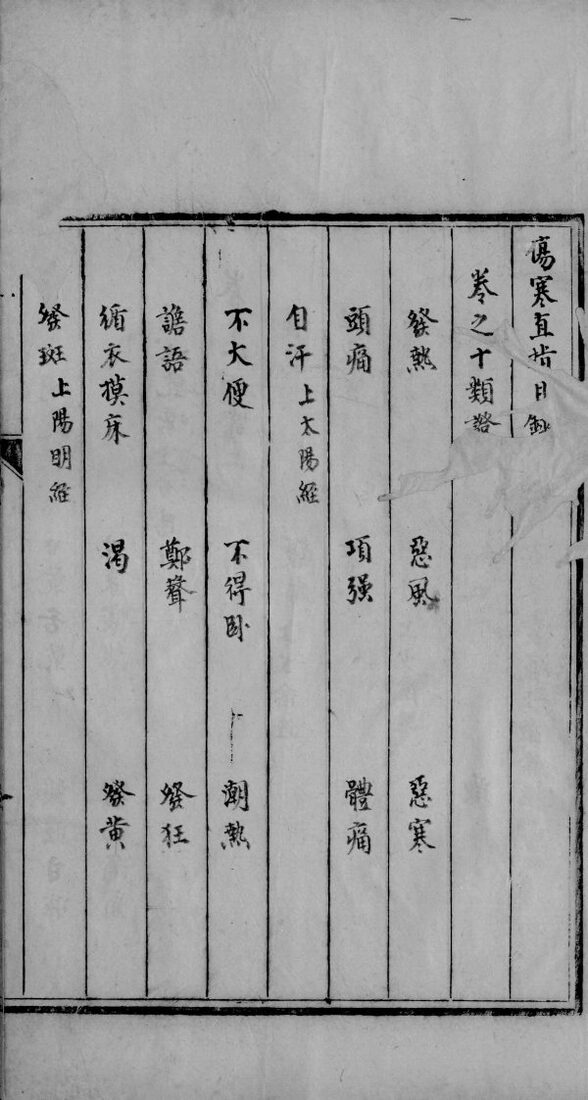 傷寒直指目錄
卷之十類證
發熱 惡風 惡寒
頭痛 項强 體痛
自汗上太陽經
不大便 不得卧 潮熱
譫語 鄭聲 發狂
循衣摸床 渴 發黄
發斑上陽明經